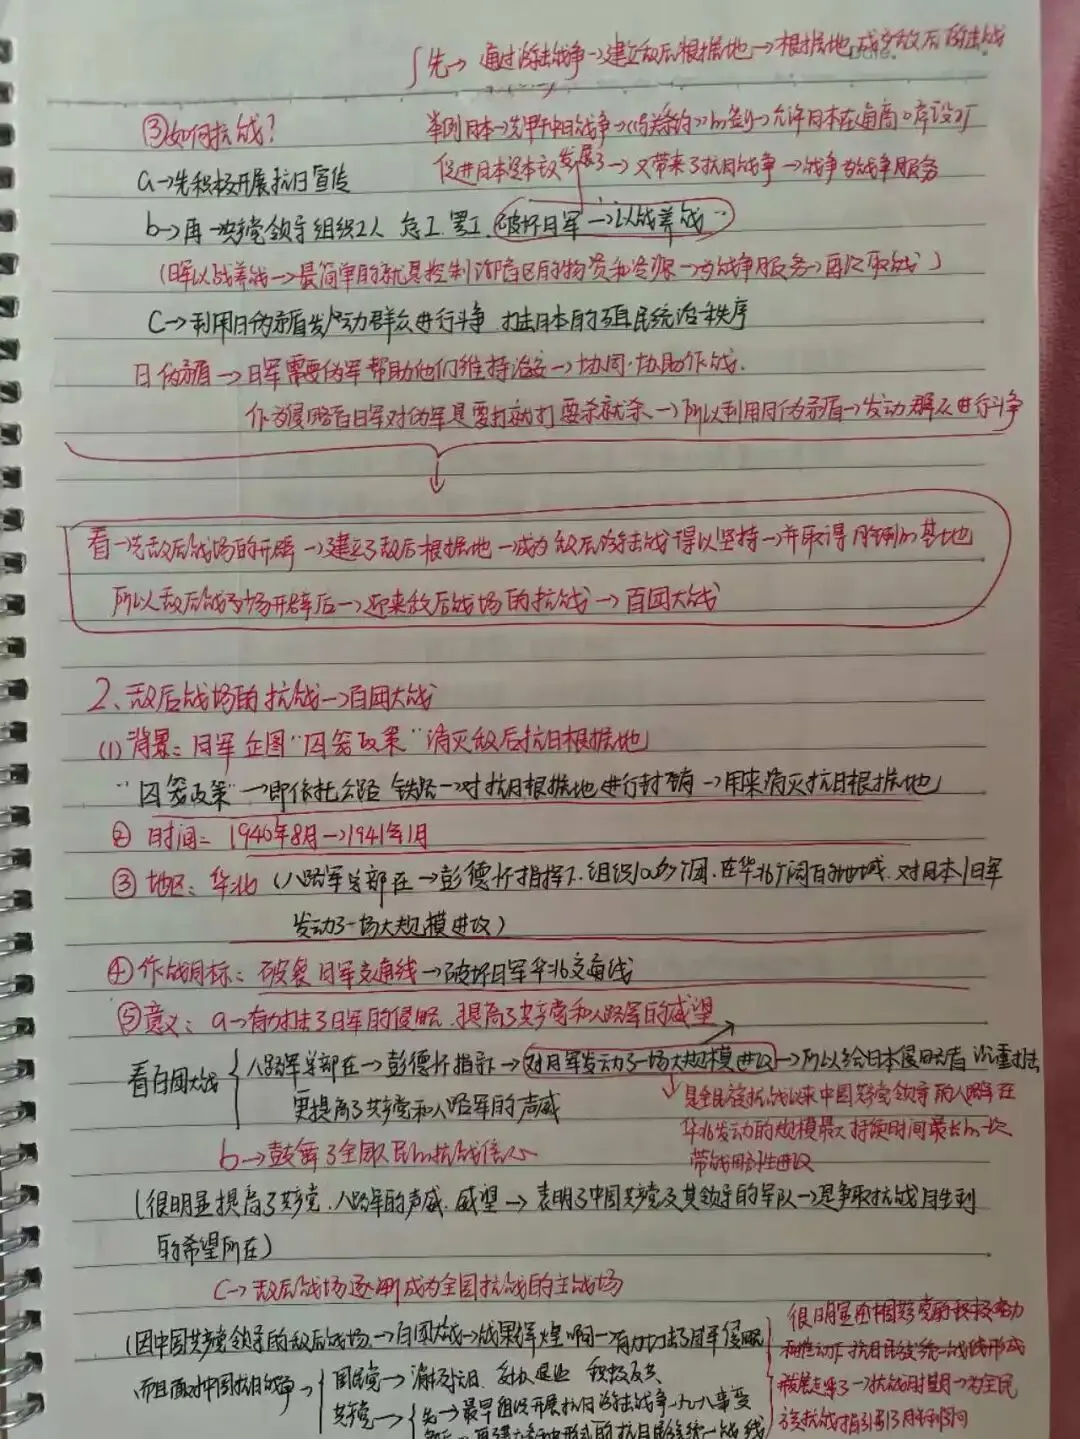 先→通过游击战争→建立敌后根据地→根据地成为敌后游击战
③如何抗战?
举例日本→先甲午中日战争→《马关条约》的签订→允许日本在通商口岸设厂
促进日本资本主义发展了→又带来了抗日战争→战争为战争服务
a→先积极开展抗日宣传
b→再→共产党领导组织工人 怠工、罢工、破坏日军→以战养战
(日军以战养战→最简单的就是控制沦陷区的物资和资源→为战争服务→再次取战)
C→利用日伪矛盾发动群众进行斗争 打击日本的殖民统治秩序
日伪矛盾→日军需要伪军帮助他们维持治安→协同·协助作战.
作为侵略者日军对伪军是要打就打 要杀就杀、→所以利用日伪矛盾→发动群众进行斗争
看→先敌后战场的开辟→建立了敌后根据地→成为敌后游击战得以坚持→并取得胜利的基地
所以敌后战场开辟后→迎来敌后战场的抗战→百团大战
2、敌后战场的抗战→百团大战
(1)背景:日军企图“囚笼政策”消灭敌后抗日根据地
“囚笼政策”→即依托公路 铁路→对抗日根据地进行封锁→用来消灭抗日根据地
② 时间:1940年8月→1941年1月
③ 地区:华北(八路军总部在→彭德怀指挥下.组织100多个团.在华北广阔的地域.对日本/日军
发动了一场大规模进攻)
④作战目标:破袭日军交通线→破坏日军华北交通线
⑤意义:a→有力打击了日军的侵略.提高了共产党和八路军的威望
看百团大战 八路军总部在→彭德怀指导→对日军发动了一场大规模进攻→所以给日本侵略者沉重打击
更提高了共产党和八路军的声威
是全民族抗战以来中国共产党领导的八路军在
华北发动的规模最大 持续时间最长的一次
带战略性进攻
b→鼓舞了全国人民的抗战信心
(很明显提高了共产党.八路军的声威.威望→表明了中国共产党及其领导的军队→是争取抗战胜利
的希望所在)
C→敌后战场逐渐成为全国抗战的主战场
(因中国共产党领导的敌后战场→百团大战→战果辉煌啊→有力打击了日军侵略
而且面对中国抗日战争→ 国民党→消极抗日、积极反共
共产党→ 先→最早组织开展抗日游击战争→九一八事变
形式的抗日民族统一战线
很明显在中国共产党的积极努力
和推动下 抗日民族统一战线形成
→为全民
族抗战指引了胜利